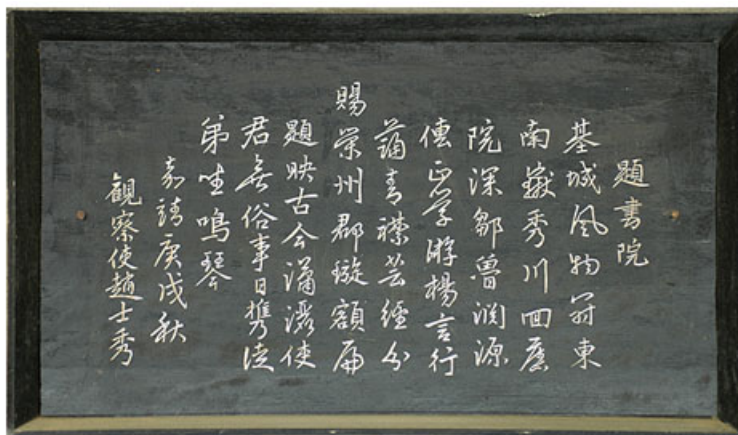 題書院
基城風物冠東
南嶽秀川回廈
院深鄒魯淵源
傳正學游楊言行
藹青襟芸經分
賜榮州郡璇額扁
題映古今瀟灑使
君無俗事日携徒
弟坐鳴琴
嘉靖庚戌秋
觀察使趙士秀